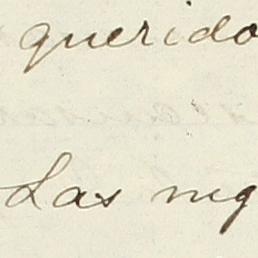 querido
Las neg